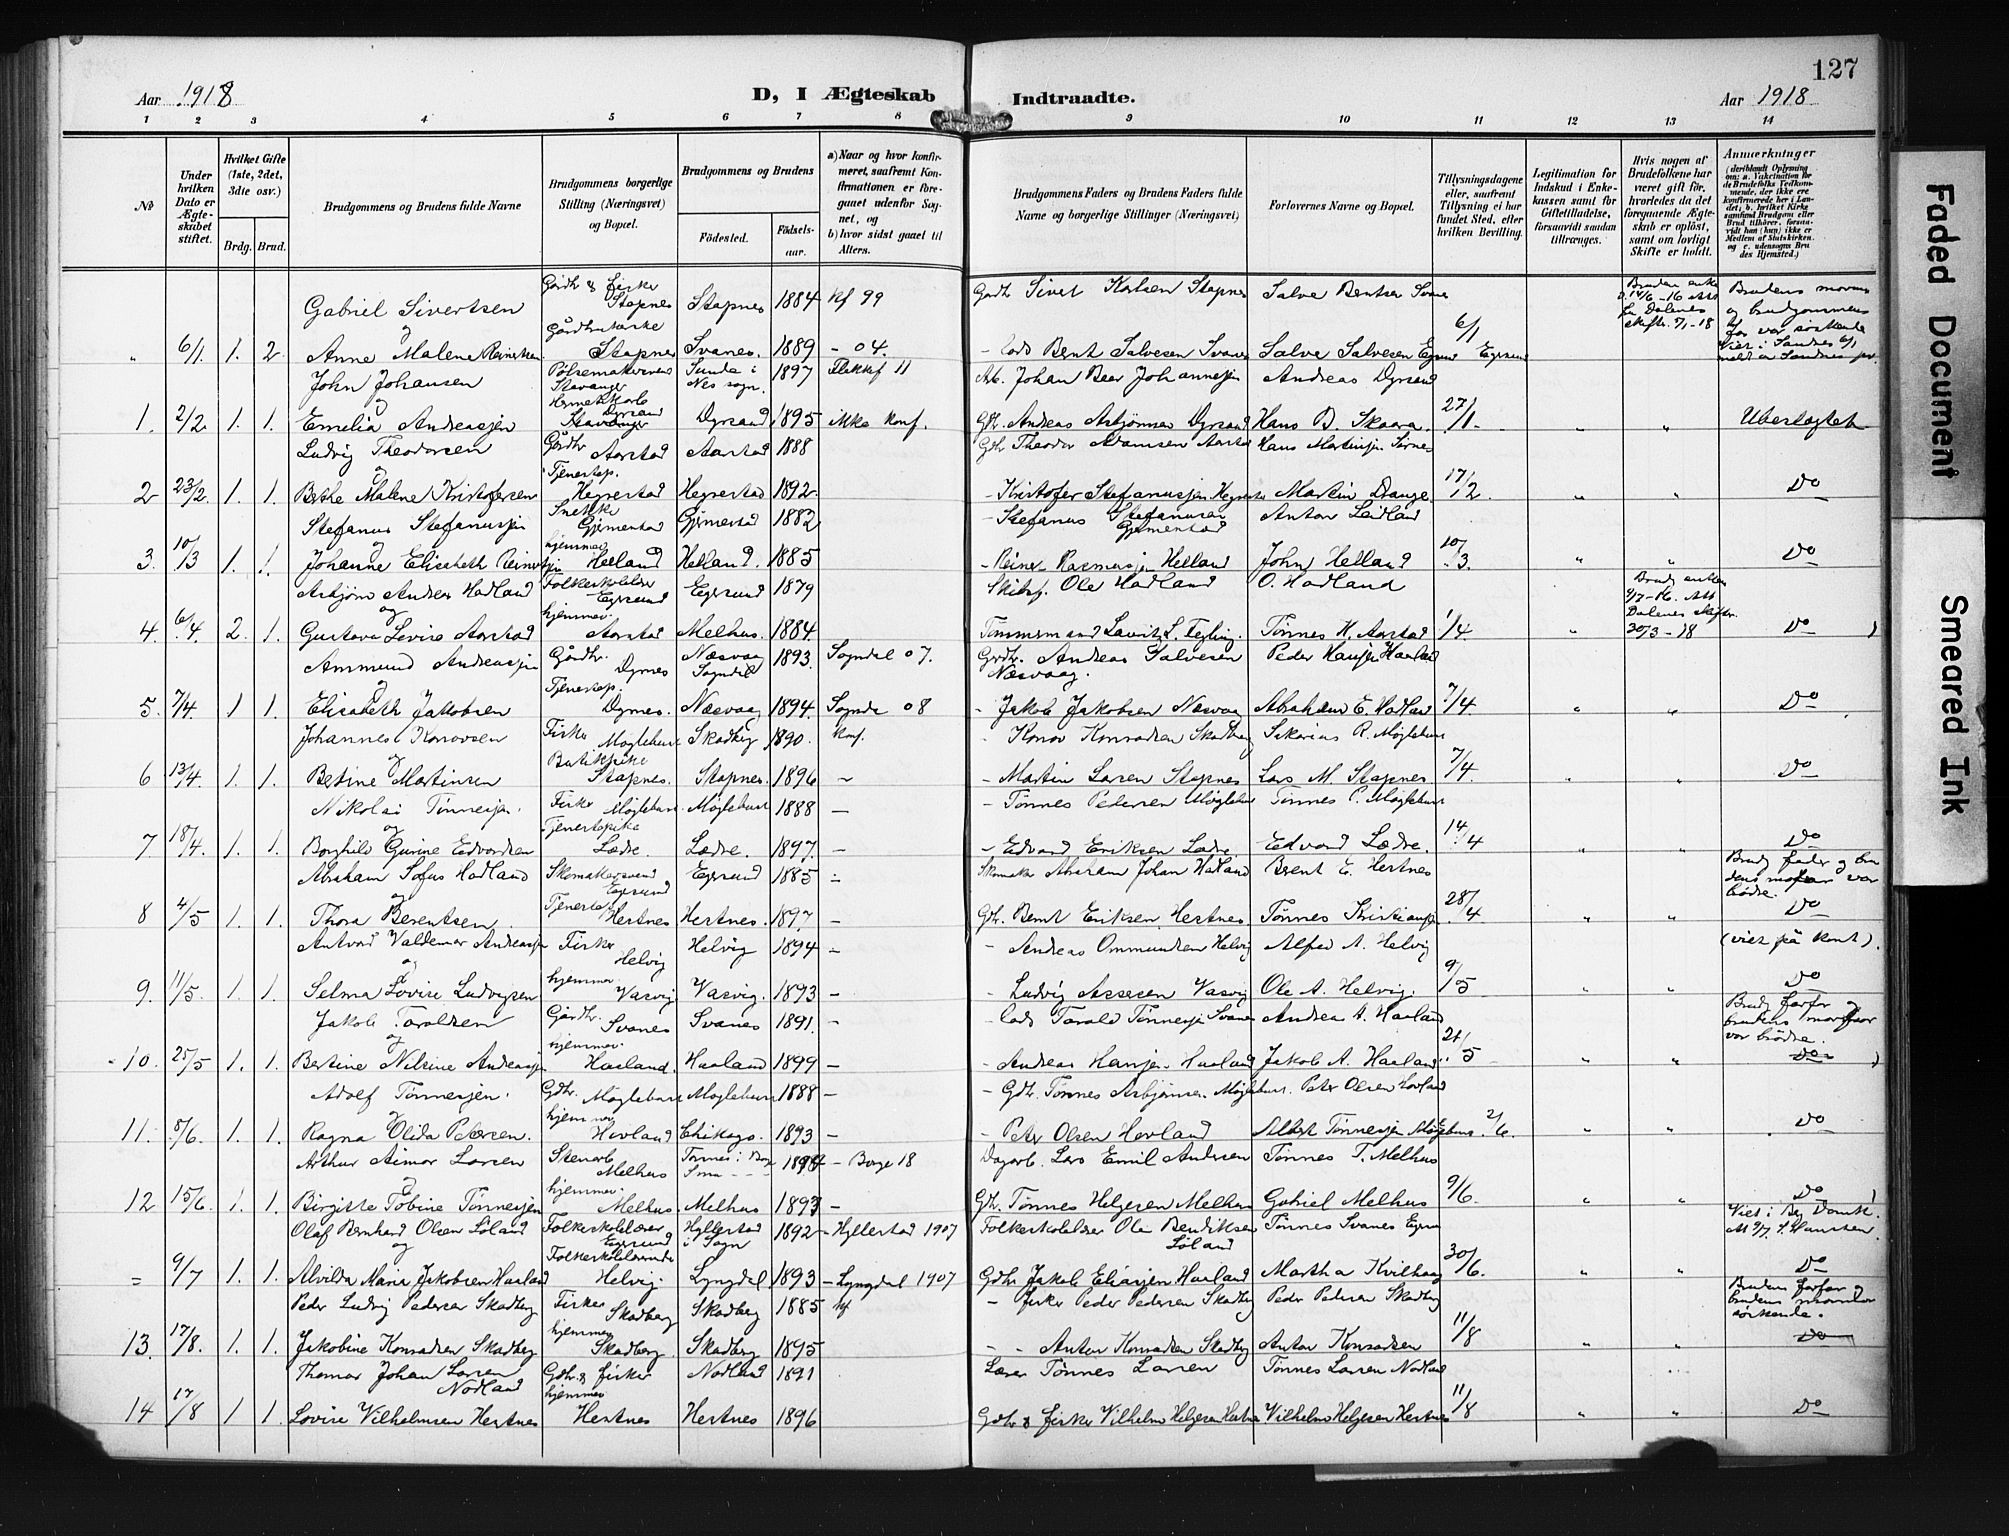 127
Aar 1918
D, I Ægteskab Indtraadte.
Aar 1918
1 2 3 4 5 6 7 8 9 10 11 12 13 14
№
Under hvilken Dato er Ægteskabet stiftet.
Hvilket Gifte (1ste, 2det, 3die osv.)
Brdg. Brud.
Brudgommens og Brudens fulde Navne
Brudgommens borgerlige Stilling (Næringsvei) og Bopæl.
Brudgommens og Brudens
Födested.
Födselsaar.
a) Naar og hvor konfirmeret, saafremt Konfirmationen er foregaaet udenfor Sognet, og
b) hvor sidst gaaet til Alters.
Brudgommens Faders og Brudens Faders fulde Navne og borgerlige Stillinger (Næringsvei)
Forlovernes Navne og Bopæl.
Tillysningsdagene eller, saafremt Tillysning ei har fundet Sted, efter hvilken Bevilling.
Legitimation for Indskud i Enkekassen samt for Giftetilladelse, forsaavidt saadan tiltrænges.
Hvis nogen af Brudefolkene har været gift för, hvorledes da det foregaaende Ægteskab er oplöst, samt om lovligt Skifte er holdt.
Anmærkninger
(deriblandt Oplysning om: a. Vakcination for de Brudefolks Vedkommende, der ikke ere konfirmerede her i Landet; b. hvilket Kirkesamfund Brudgom eller Brud tilhörer, forsaavidt han (hun) ikke er Medlem af Statskirken, og c. udensogns Brudes Hjemsted.)
Gabriel Sivertsen Gårdbr & fisker Stapnes Stapnes 1884 kf 99 Gårdbr Sivert Karlsen Stapnes Salve Berntsen Svanes
og
" 6/1 1. 2. Anne Malene Reinertsen Stapnes Svanes. 1889 - 04. Bent Salvesen Svanes Salve Salvesen Egersund 6/1
John Johansen Pölsemakersvend Stavanger Sunde i Nes sogn. 1897 Flekkef 11 Arb. Johan Beer Johannesen Andreas Dyrsand
og
1. 2/2 1. 1. Emelia Andreassen Dyrsand Stavanger Dyrsand 1895 ikke konf. Gbr. Andreas Asbjörnsen Dyrsand Hans B. Skaara. 27/1 " " Ubeslægtet
Ludvig Theodorsen Gårdbr Aarstad Aarstad 1888 Gbr Theodor Adamsen Aarstad Hans Martinsen
og
2 23/2 1. 1. Berthe Malene Kristofersen Tjenestep. Hegrestad Hegrestad 1892. - Kristofer Stefanussen Hegrestad Martin Drange 17/2. " " Do
Stefanus Stefanussen Snekker Gjermestad Gjermestad 1882 - Stefanus Stefanussen Gjermestad Anton Leidland
og
3. 10/3 1. 1. Johanne Elisabeth Reinertsen hjemmev. Helland Helland. 1885 - Reiner Rasmussen Helland John Helland 10/3. " " Do
Asbjörn Andreas Hadland Folkeskolelær Egersund Egersund 1879 Skibsf. Ole Hadland O. Hadland
og
4. 6/4 2. 1. Gustava Lovise Aarstad hjemmev. Aarstad Melhus. 1884. Tömmermand Lauritz L. Tegling. Tönnes H. Aarstad 1/4 " 30/3-18 Do
Ammund Andreassen Gårdbr. Dyrnes Næsvaag Sogndal 1893. Sogndal 07. Gårdbr. Andreas Salvesen Næsvaag. Peder Hansen Haaland
og
5. 7/4 1 1. Elisabeth Jakobsen Tjenestep. Dyrnes. Næsvaag 1894. Sogndal 08 - Jakob Jakobsen Næsvaag Abraham E. Hadland 7/4. " " Do
Johannes Konowsen Fisker Möglebust Skadberg 1890. konf. - Konov Konradsen Skadberg Sikarias R. Möglebust
og
6 13/4 1. 1. Betine Martinsen Butikpike Stapnes. Stapnes. 1896 - - Martin Larsen Stapnes Lars M. Stapnes. 7/4. " " Do
Nikolai Tönnesen. Fisker Möglebust. Möglebust 1888 - - Tönnes Pedersen Möglebust Tönnes P. Möglebust
og
7. 18/4. 1. 1. Borghild Gurine Edvardsen Tjenestepike Lædre. Lædre. 1897. - - Edvard Eriksen Lædre Edvard Lædre. 14/4 " " Do
Abraham Sofus Hadland Skomakersvend Egersund Egersund 1885 - Skomaker Abraham Johan Hadland Berent E. Hertnes Brudg. fader og brudens morfar var brødre.
og
8 4/5 1. 1. Thora Berentsen Tjenestep. Hestnes Hestnes. 1897. - Gbr. Bernt Eriksen Hestnes Tönnes Kristiansen 28/4 " " Do
Antvad Valdemar Andreassen Fisker Helvig Helvig 1894 - - Andreas Ommundsen Helvig Alfred A. Helvig (viet på kont).
og
9. 11/5. 1. 1. Selma Lovise Ludvigsen hjemmev Vasvig Vasvig. 1893 - - Ludvig Assesen Vasvig Ole A. Helvig. 9/5 " " Do
Jakob Taraldsen Gårdbr. Svanes Svanes 1891. - Tarald Tönnesen Svanes Andreas A. Haaland Brudg farfar og brudens morfar var brödre.
og
10. 25/5 1. 1. Bertine Nilsine Andreassen hjemmev. Haaland. Haaland 1899 - - Andreas Hansen Haaland Jakob A. Haaland. 21/5 " " Do
Adolf Tönnessen. Gdbr. Möglebust Möglebust 1888 - - Gdbr. Tönnes Asbjörnsen Möglebust. Peter Olsen Hovland
og
11. 8/6. 1. 1. Ragna Olida Petersen. hjemmev Hovland Chikago. 1893 - - Peter Olsen Hovland Albert Tönnesen Möglebust. 2/6. " " Do
Arthur Aimar Larsen Stenarb Melhus - Borge 18 Dagarb. Lars Emil Andersen Tönnes T. Melhus
og
12 15/6. 1. 1. Birgitte Tobine Tönnessen hjemmev. Melhus. Melhus 1893 - Gbr. Tönnes Helgesen Melhus Gabriel Melhus 9/6. " " Do
Olaf Bernhard Olsen Löland Folkeskolelærer Egersund Hyllestad i Sogn 1892 - Hyllestad 1907 Folkeskolelærer Ole Bendiksen Löland Tönnes Svanes Egersund
og
= 9/7 1. 1. Alvilda Maria Jakobsen Haaland Folkeskolelærerinde Helvig. Lyngdal 1893 - Lyngdal 1907 Gdbr Jakob Eliassen Haaland Martha Kvilhaug 30/6. " " Do
Peder Ludvig Pedersen Skadberg Fisker Skadberg Skadberg 1885 kf - Fisker Peder Pedersen Skadberg Peder Pedersen Skadberg Brudens farfar og brudens mormor söskende.
13. 17/8. 1. 1. Jakobine Konradsen Skadberg hjemmev Skadberg. Skadberg 1895 - - Anton Konradsen Skadberg Anton Konradsen 11/8 " " Do
Thomas Johan Larsen Nodland Gdbr. & fisker Nodland 1891 Lærer Tönnes Larsen Tönnes Larsen Nodland
14 17/8 1 1. Lovise Vilhelmsen Hestnes hjemmev Hestnes Hestnes 1896 Gdbr & fisker Vilhelm Helgesen Hestnes Vilhelm Helgesen Hestnes 11/8 " " Do
Faded Document
Smeared Ink